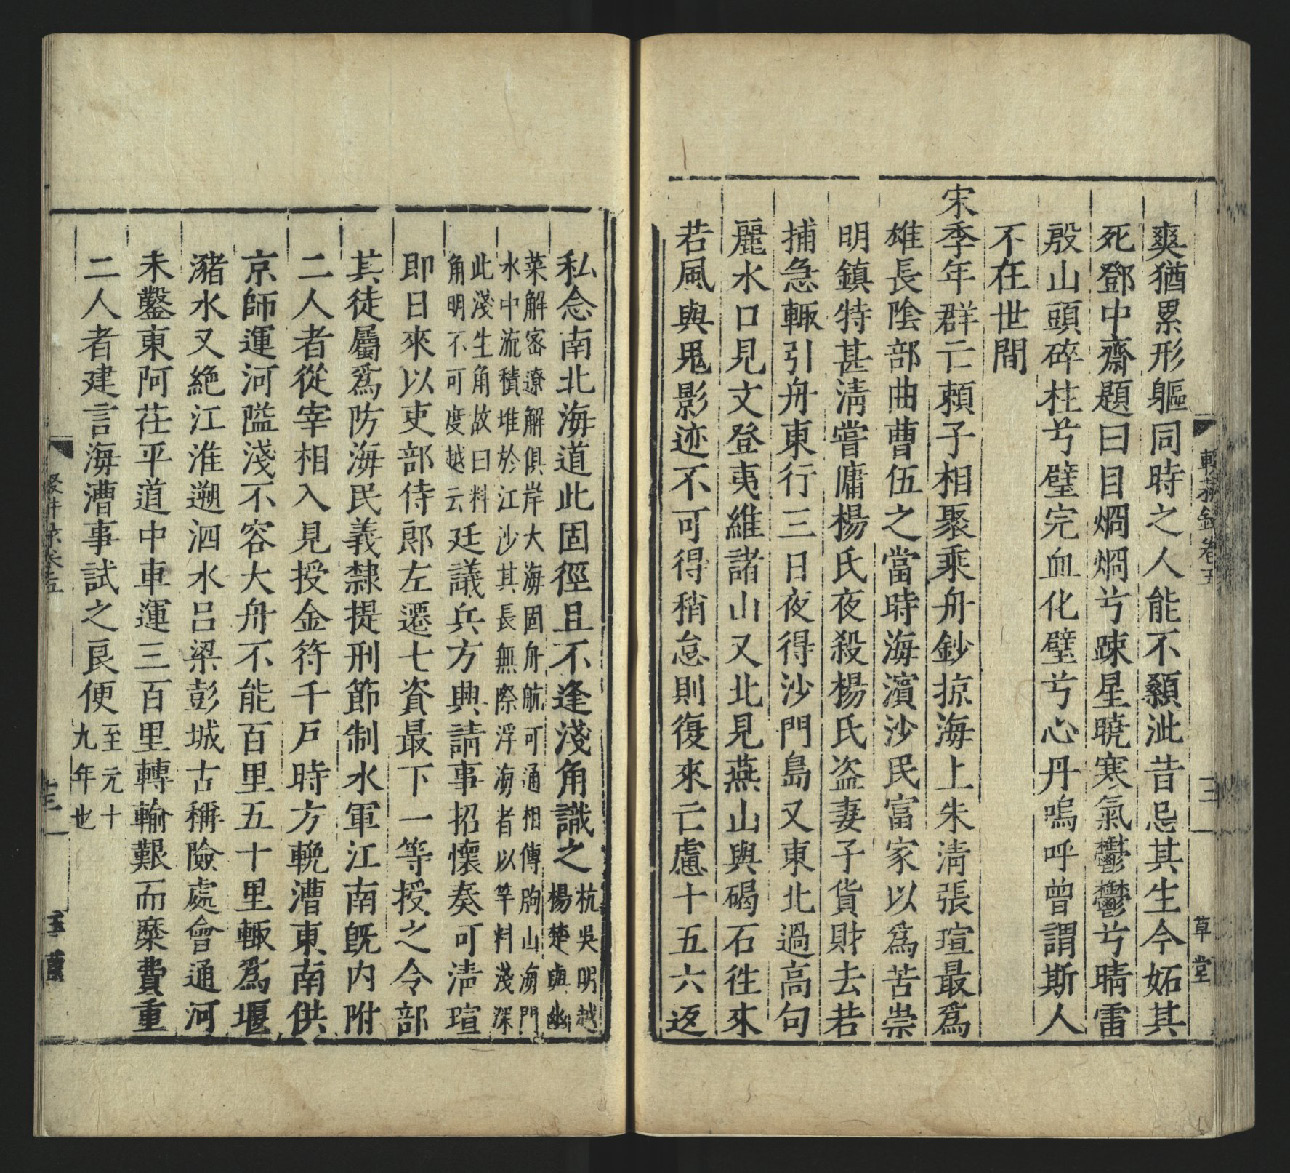 輟耕錄卷五
三
草堂
爽猶累形軀同時之人能不顙泚昔忌其生今妬其
死鄧中齋題曰目烱烱兮踈星曉寒氣鬱鬱兮晴雷
殷山頭碎柱兮璧完血化璧兮心丹嗚呼曾謂斯人
不在世間
宋季年群亡頼子相聚乘舟鈔掠海上朱清張瑄最爲
雄長陰部曲曹伍之當時海濱沙民富家以爲苦崇
明鎮特甚清嘗庸楊氏夜殺楊氏盗妻子貨財去若
捕急輒引舟東行三日夜得沙門島又東北過高句
麗水口見文登夷維諸山又北見燕山與碣石往來
若風與鬼影迹不可得稍怠則復來亡慮十五六返
私念南北海道此固徑且不逢淺角識之杭吳明越
楊楚與幽
萊解密遼解俱岸大海固舟航可通相傳朐山海門
水中流積堆於江沙其長無際浮海者以竿料淺深
此淺生角故曰料
角明不可度越云廷議兵方興請事招懷奏可清瑄
即日來以吏部侍郎左遷七資最下一等授之令部
其徒屬爲防海民義隸提刑節制水軍江南旣內附
二人者從宰相入見授金符千戶時方輓漕東南供
京師運河隘淺不容大舟不能百里五十里輒爲堰
瀦水又絶江淮遡泗水呂梁彭城古稱險處會通河
未鑿東阿茌平道中車運三百里轉輸艱而糜費重
二人者建言海漕事試之良便至元十
九年也